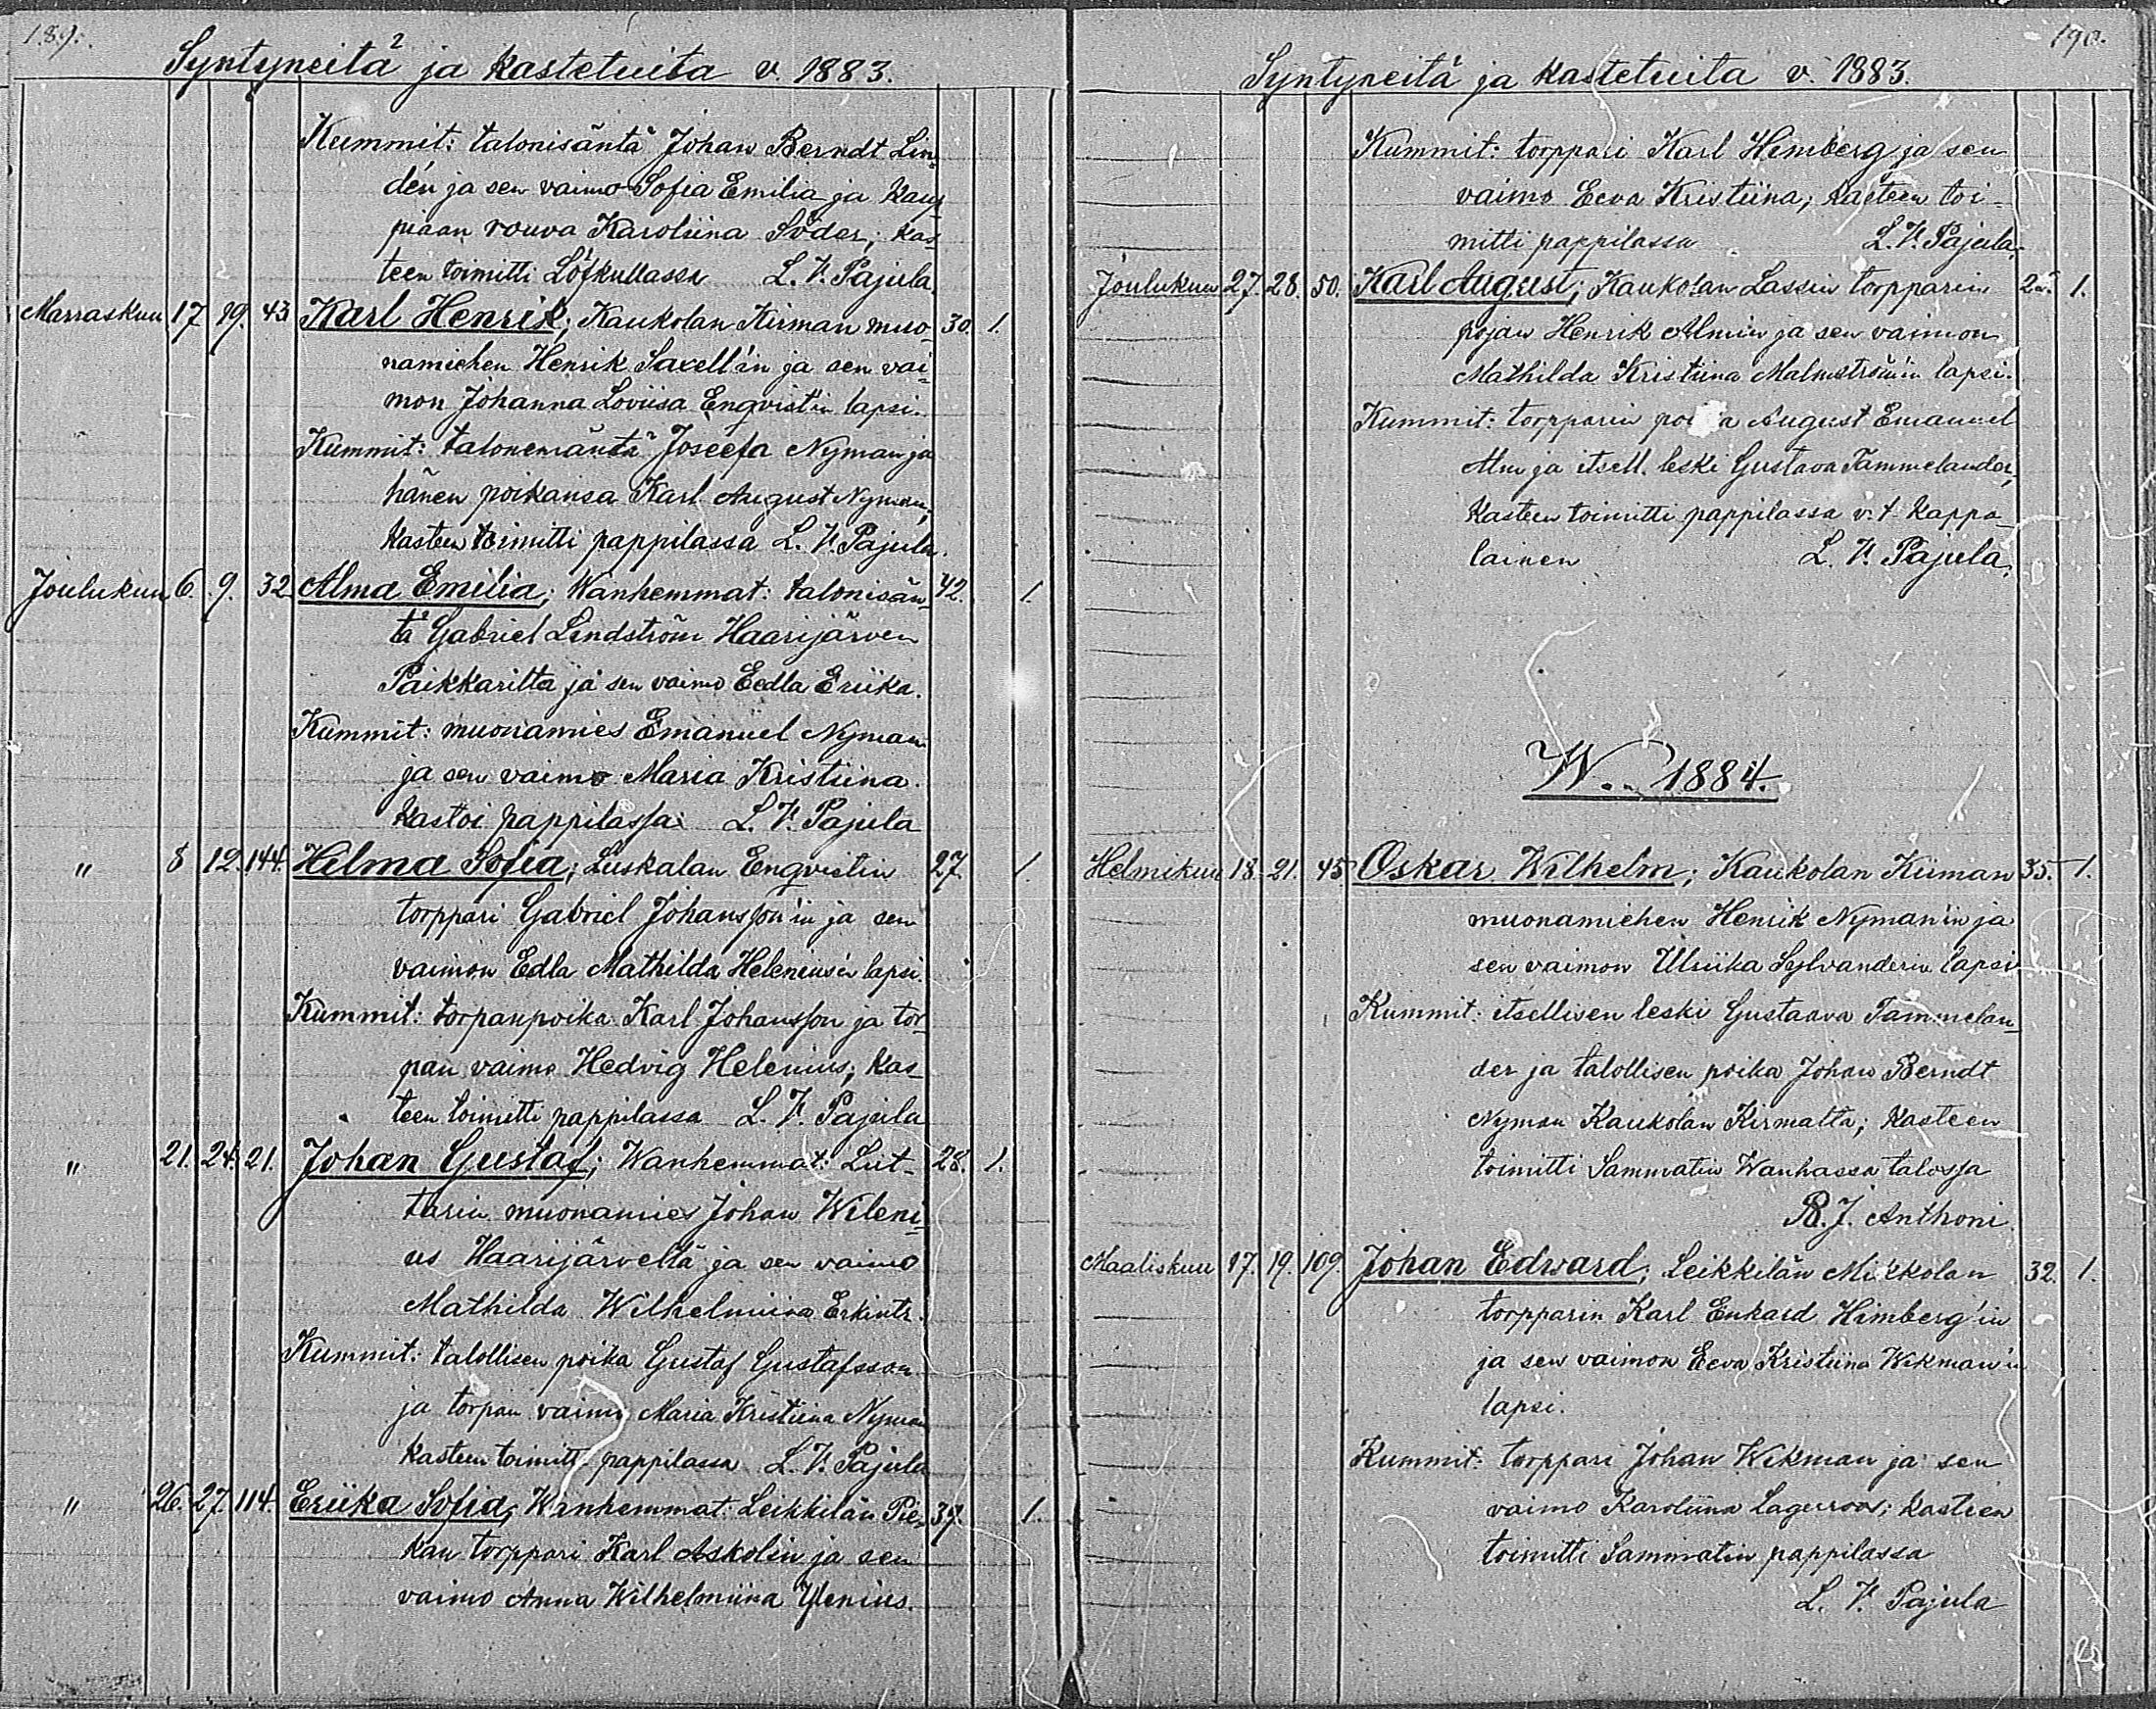 189.
Syntyneitä ja kastetuita v. 1883.
Kummit: talonisäntä Johan Berndt Lin-
dén ja sen vaimo Sofia Emilia ja kaup-
piaan rouva Karoliina Söder; kas-
teen toimitti Löfkullassa L. V. Pajula.
Marraskuu 17. 19. 43 Karl Henrik; Kaukolan Kirman muo- 30. 1.
namiehen Henrik Saxell'in ja sen vai-
mon Johanna Loviisa Engvist'in lapsi.
Kummit: talonemäntä Joseefa Nyman ja
hänen poikansa Karl August Nyman;
kasteen toimitti pappilassa L. V. Pajula.
Joulukuu 6. 9. 32 Alma Emilia; Wanhemmat: talonisän- 42. 1.
tä Gabriel Lindström Haarijärven
Paikkarilta ja sen vaimo Eedla Eriika.
Kummit: muonamies Emanuel Nyman
ja sen vaimo Maria Kristiina.
Kastoi pappilassa L. V. Pajula
" 8 12. 144. Hilma Sofia; Luskalan Engvistin 27. 1.
torppari Gabriel Johansson'in ja sen
vaimon Edla Mathilda Helenius'in lapsi.
Kummit: torpanpoika Karl Johansson ja tor-
pan vaimo Hedvig Helenius; kas-
teen toimitti pappilassa L. V. Pajula
" 21. 24. 21. Johan Gustaf; Wanhemmat: Lut- 28. 1.
tarin muonamies Johan Wileni-
us Haarijärveltä ja sen vaimo
Mathilda Wilhelmiina Erkintr.
Kummit: talollisen poika Gustaf Gustafsson
ja torpan vaimo Maria Kristiina Nyman
kasteen toimitti pappilassa L. V. Pajula
" 26. 27. 114. Eriika Sofia; Wanhemmat: Leikkilän Pie- 37. 1.
kan torppari Karl Askolin ja sen
vaimo Anna Wilhelmiina Ylenius.
190.
Syntyneitä ja kastetuita v. 1883.
Kummit: torppari Karl Himberg ja sen
vaimo Eeva Kristiina; kasteen toi-
mitti pappilassa L. V. Pajula.
Joulukuu 27. 28. 50. Karl August; Kaukolan Lassin torpparin 1.
pojan Henrik Almin ja sen vaimon
Mathilda Kristiina Malmströmin lapsi.
Kummit: torpparin poika August Emanuel
Alm ja itsell. leski Gustava Tammelander;
kasteen toimitti pappilassa v. t. kappa-
lainen L. V. Pajula.
W. 1884.
Helmikuu 18. 21. 45 Oskar Wilhelm; Kaukolan Kirman 35. 1.
muonamiehen Henrik Nyman'in ja
sen vaimon Ulriika Sylvanderin lapsi
Kummit: itsellisen leski Gustaava Tammelan-
der ja talollisen poika Johan Berndt
Nyman Kaukolan Kirmalta; kasteen
toimitti Sammatin Wanhassa talossa
R. J. Anthoni
Maaliskuu 17. 19. 109. Johan Edward; Leikkilän Mikkolan 32. 1.
torpparin Karl Enkard Himberg'in
ja sen vaimon Eeva Kristiina Wikman'in
lapsi.
Kummit: torppari Johan Wikman ja sen
vaimo Karoliina Lagerroos; kasteen
toimitti Sammatin pappilassa
L. V. Pajula